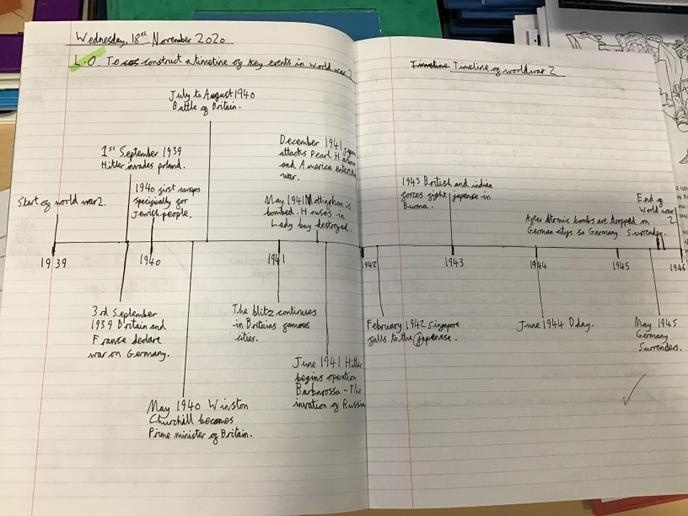 Wednesday, 18th November 2020
L.O. To construct a timeline of key events in World war 2
July to August 1940
Battle of Britain.
1st September 1939
Hitler invades poland.
1940 first camps
specifically for
Jewish people.
Start of world war 2
December 1941
attacks Pearl
and America
war.
May 1941 Nottingham is
bombed. Houses in
Lady bay destroyed.
1939
1940
1941
3rd September
1939 Britain and
France declare
war on Germany.
The blitz continues
in Britains famous
cities.
May 1940 Winston
Churchill becomes
Prime minister of Britain.
June 1941 Hitler
begins operation
Barbarossa - The
invation of Russia
Timeline Timeline of world war 2
1943 British and indian
forces fight japense in
Burma.
End of
World war
2
After Atomic bombs are dropped on
German citys so Germany Surrender.
1942
1943
1944
1945
1946
February 1942 Singapore
falls to the japenese.
June 1944 D day.
May 1945
Germany
Surrenders.